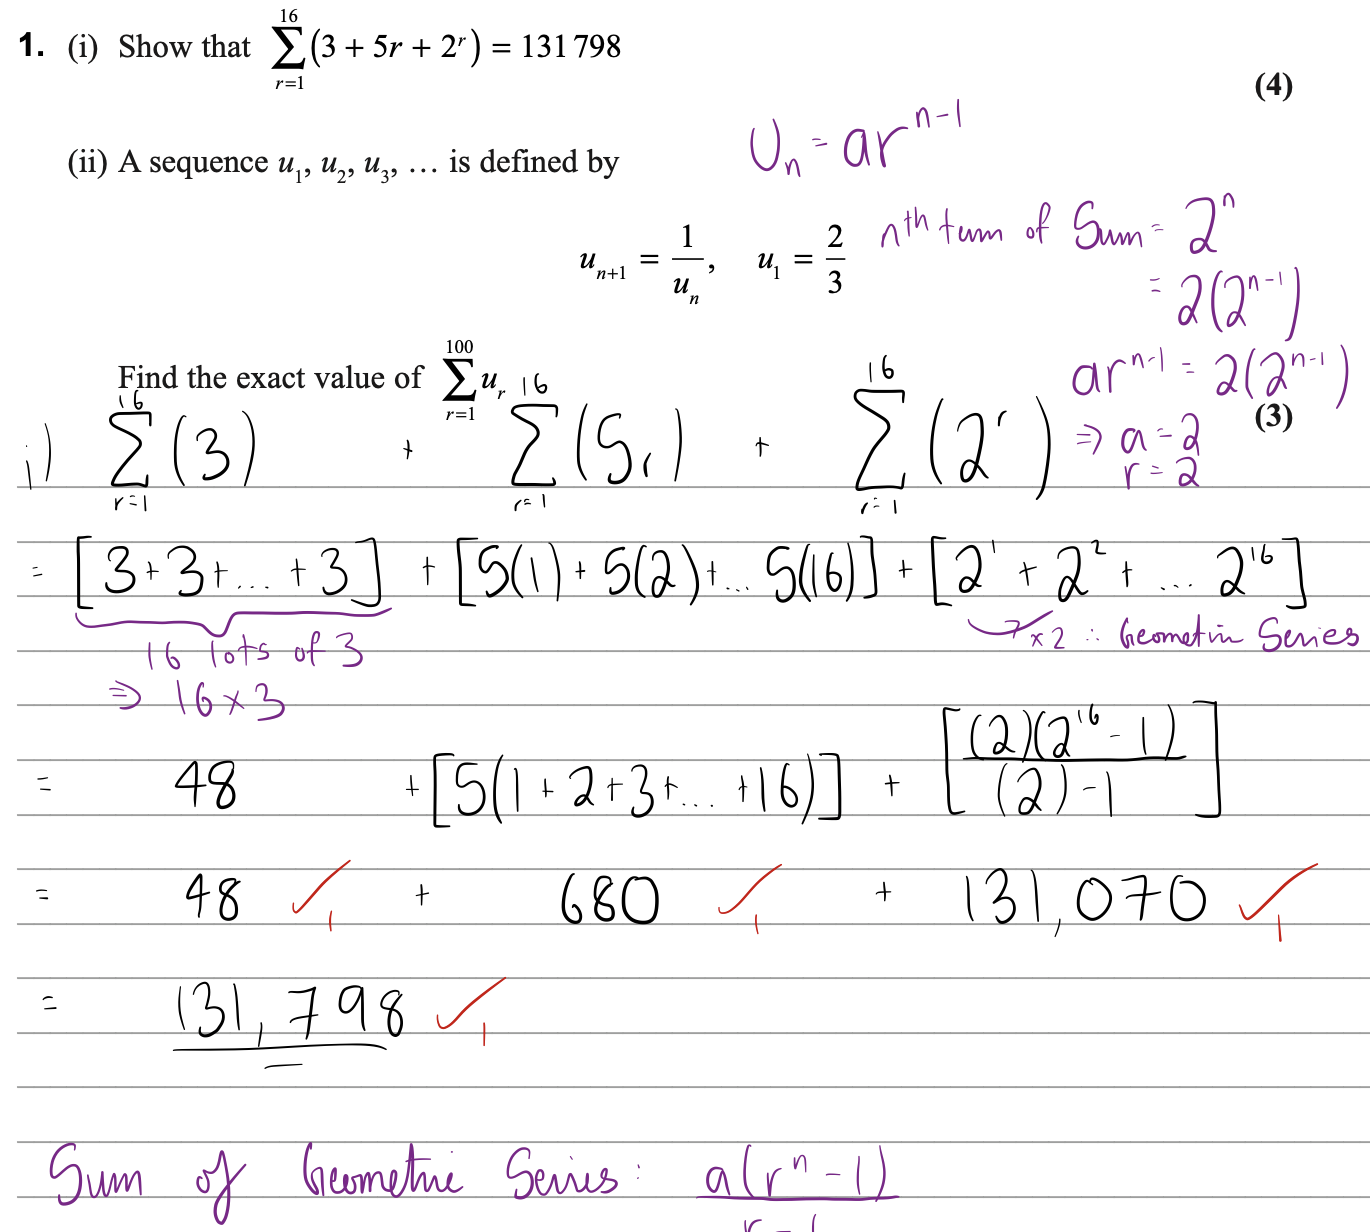 1. (i) Show that \sum_{r=1}^{16}(3 + 5r + 2^r) = 131 798
(4)
(ii) A sequence u_1, u_2, u_3, … is defined by
U_n = ar^{n-1}
u_{n+1} = \frac{1}{u_n}, u_1 = \frac{2}{3}
n^{th} term of Sum = 2^n
= 2(2^{n-1})
Find the exact value of \sum_{r=1}^{100} u_r
ar^{n-1} = 2(2^{n-1})
(3)
⇒ a = 2
r = 2
i) \sum_{r=1}^{16}(3) + \sum_{r=1}^{16}(5r) + \sum_{r=1}^{16}(2^r)
= [3+3+... +3] + [5(1)+5(2)+... 5(16)] + [2^1 + 2^2 + ... 2^{16}]
16 lots of 3
⇒ 16 × 3
×2 ∴ Geometric Series
= 48 + [5(1+2+3+... +16)] + [\frac{(2)(2^{16}-1)}{(2)-1}]
= 48 ✓1 + 680 ✓1 + 131,070 ✓1
= 131,798 ✓1
Sum of Geometric Series: \frac{a(r^n - 1)}{r - 1}